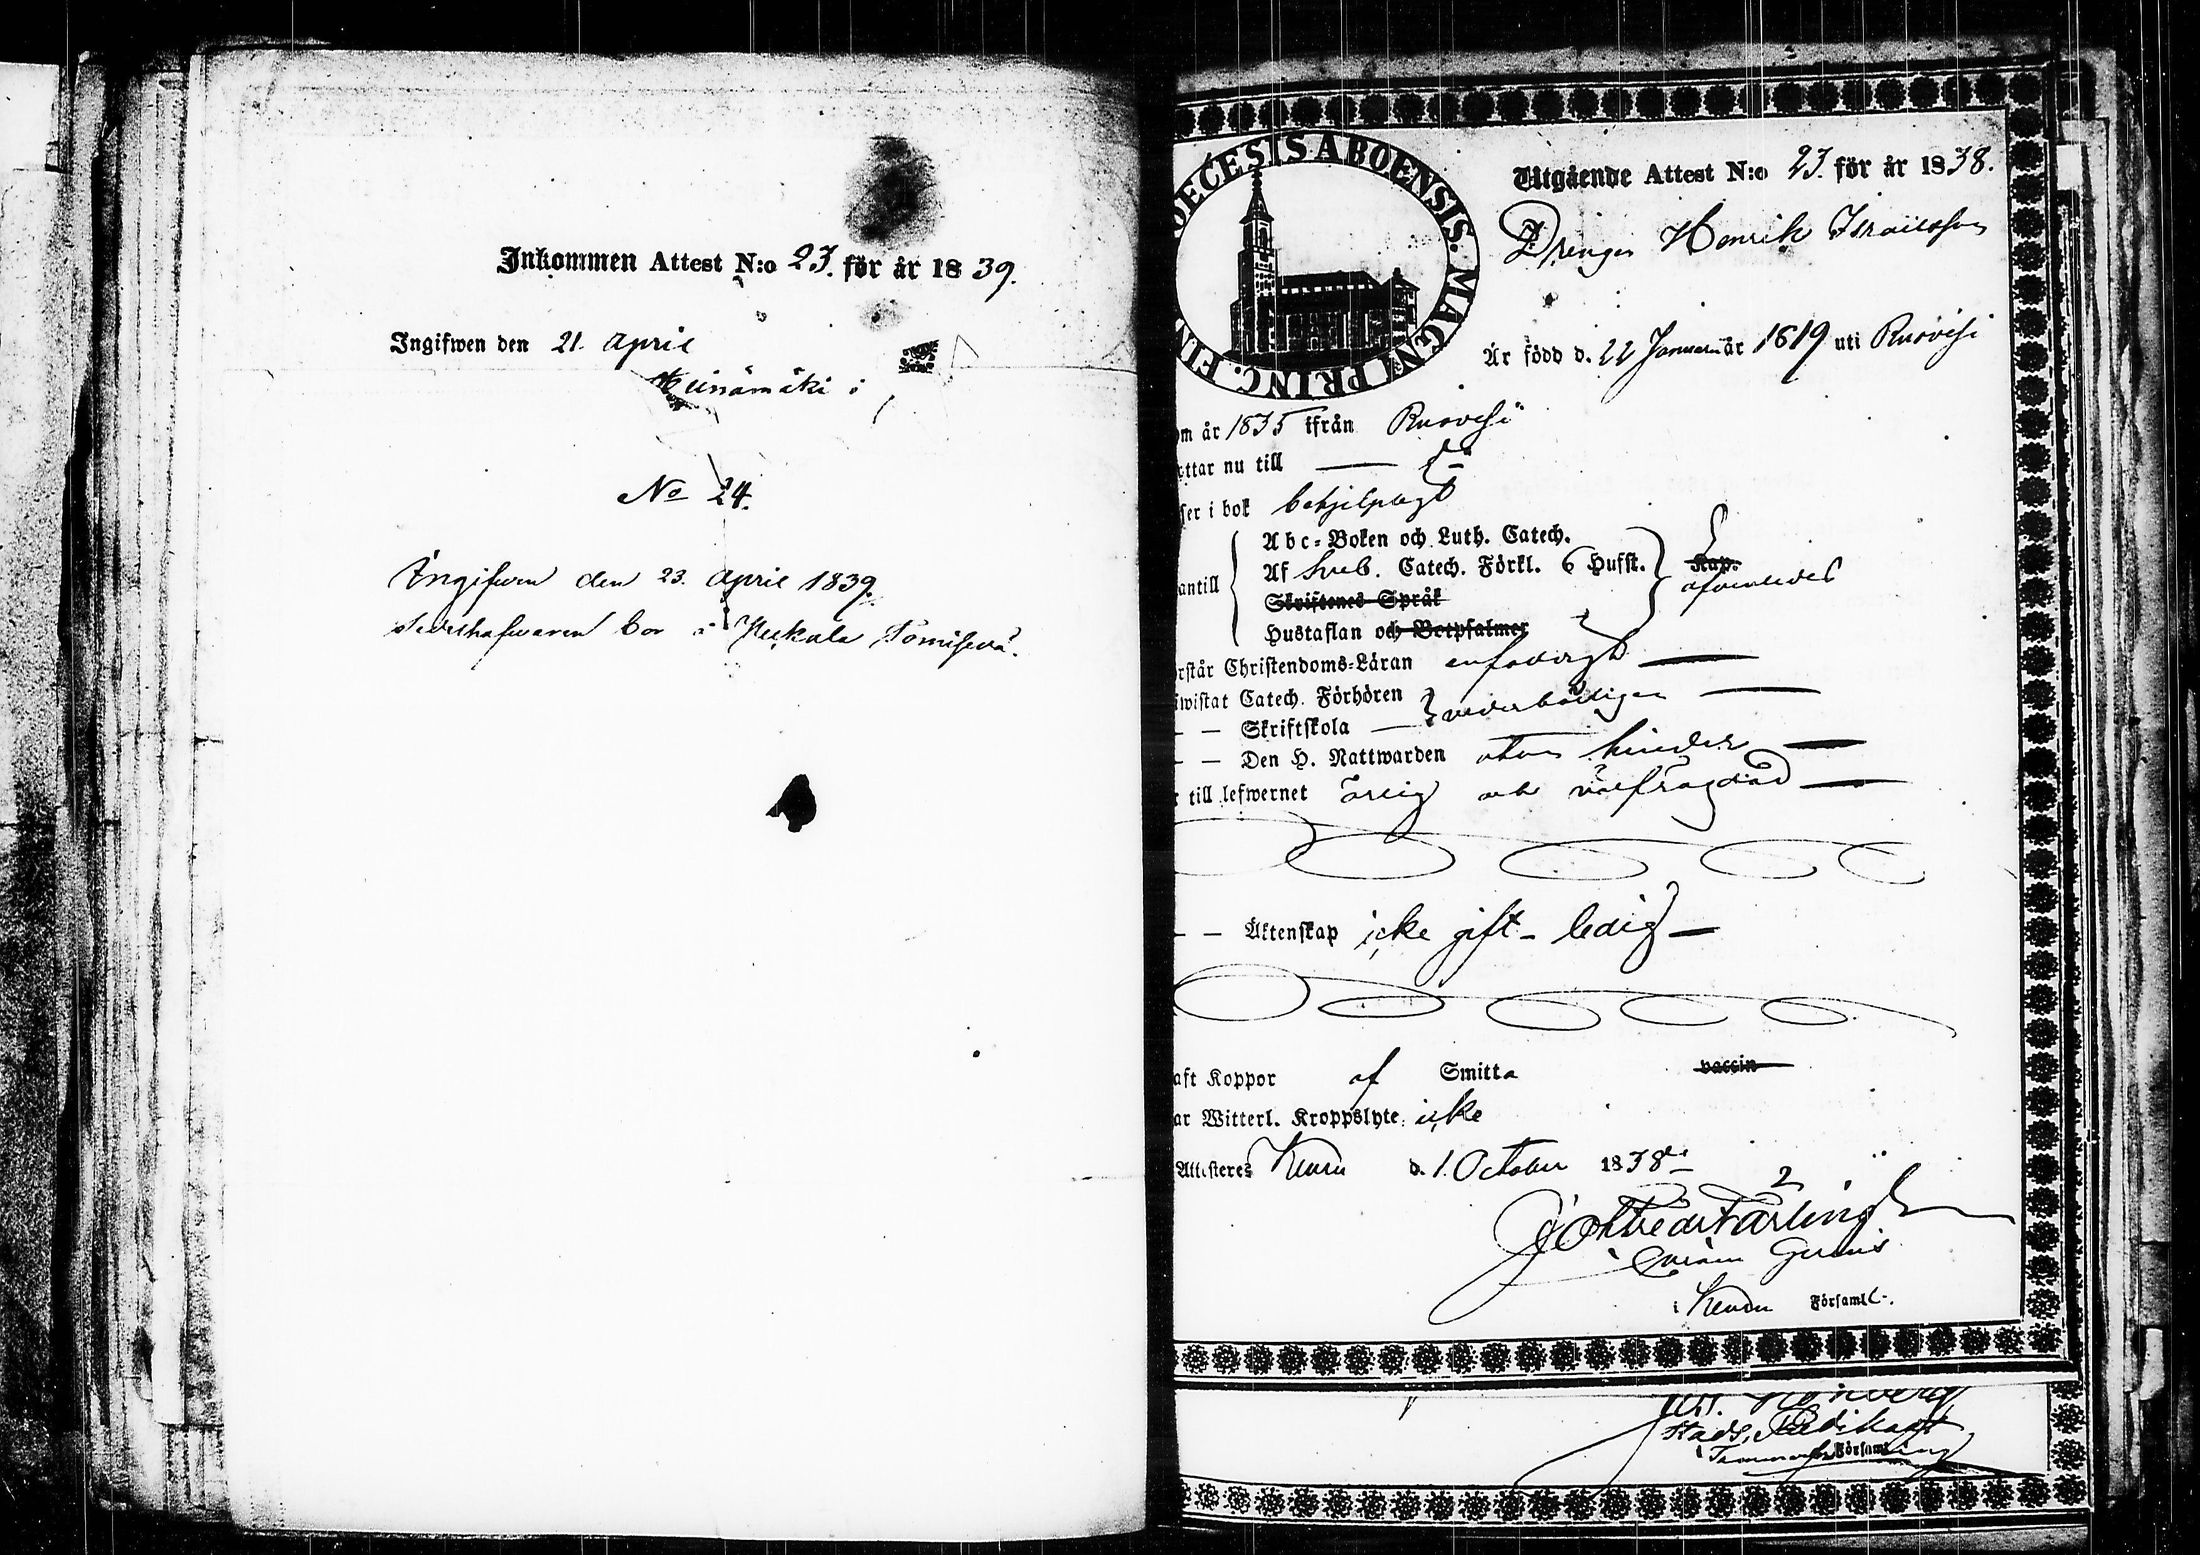 Inkommen Attest N:o 23. för år 1839.
Ingifwen den 21. April
Heinämäki i
No 24.
Ingifven den 23. April 1839.
bor i Tomisevä.
OECESIS ABOENSIS. MAGNI PRINC. FIN
Utgående Attest N:o 23. för år 1838.
Drengen Henrik Israelsson
Är född d. 22 Januarii år 1819 uti Ruovesi
om år 1835 ifrån Ruovesi
ttar nu till — d:o
ser i bok behjelpligt
Abc-Boken och Luth. Catech.
Af Sveb. Catech. Förkl. 6 Hufst. Kap.
antill
Skriftenes Språk
Hustaflan och Botpsalmer
rstår Christendoms-Läran enfaldigt —
iwistat Catech. Förhören
— — Skriftskola — vederbörligen —
— — Den H. Nattwarden utan hinder —
r till lefwernet ärlig och välfrägdad —
— — Äktenskap icke gift - ledig —
aft Koppor af Smitta vaccin
ar Witterl. Kroppslyte: icke
Attesteres Keuru d. 1. October 1838
i Keuru Församl.
Församl